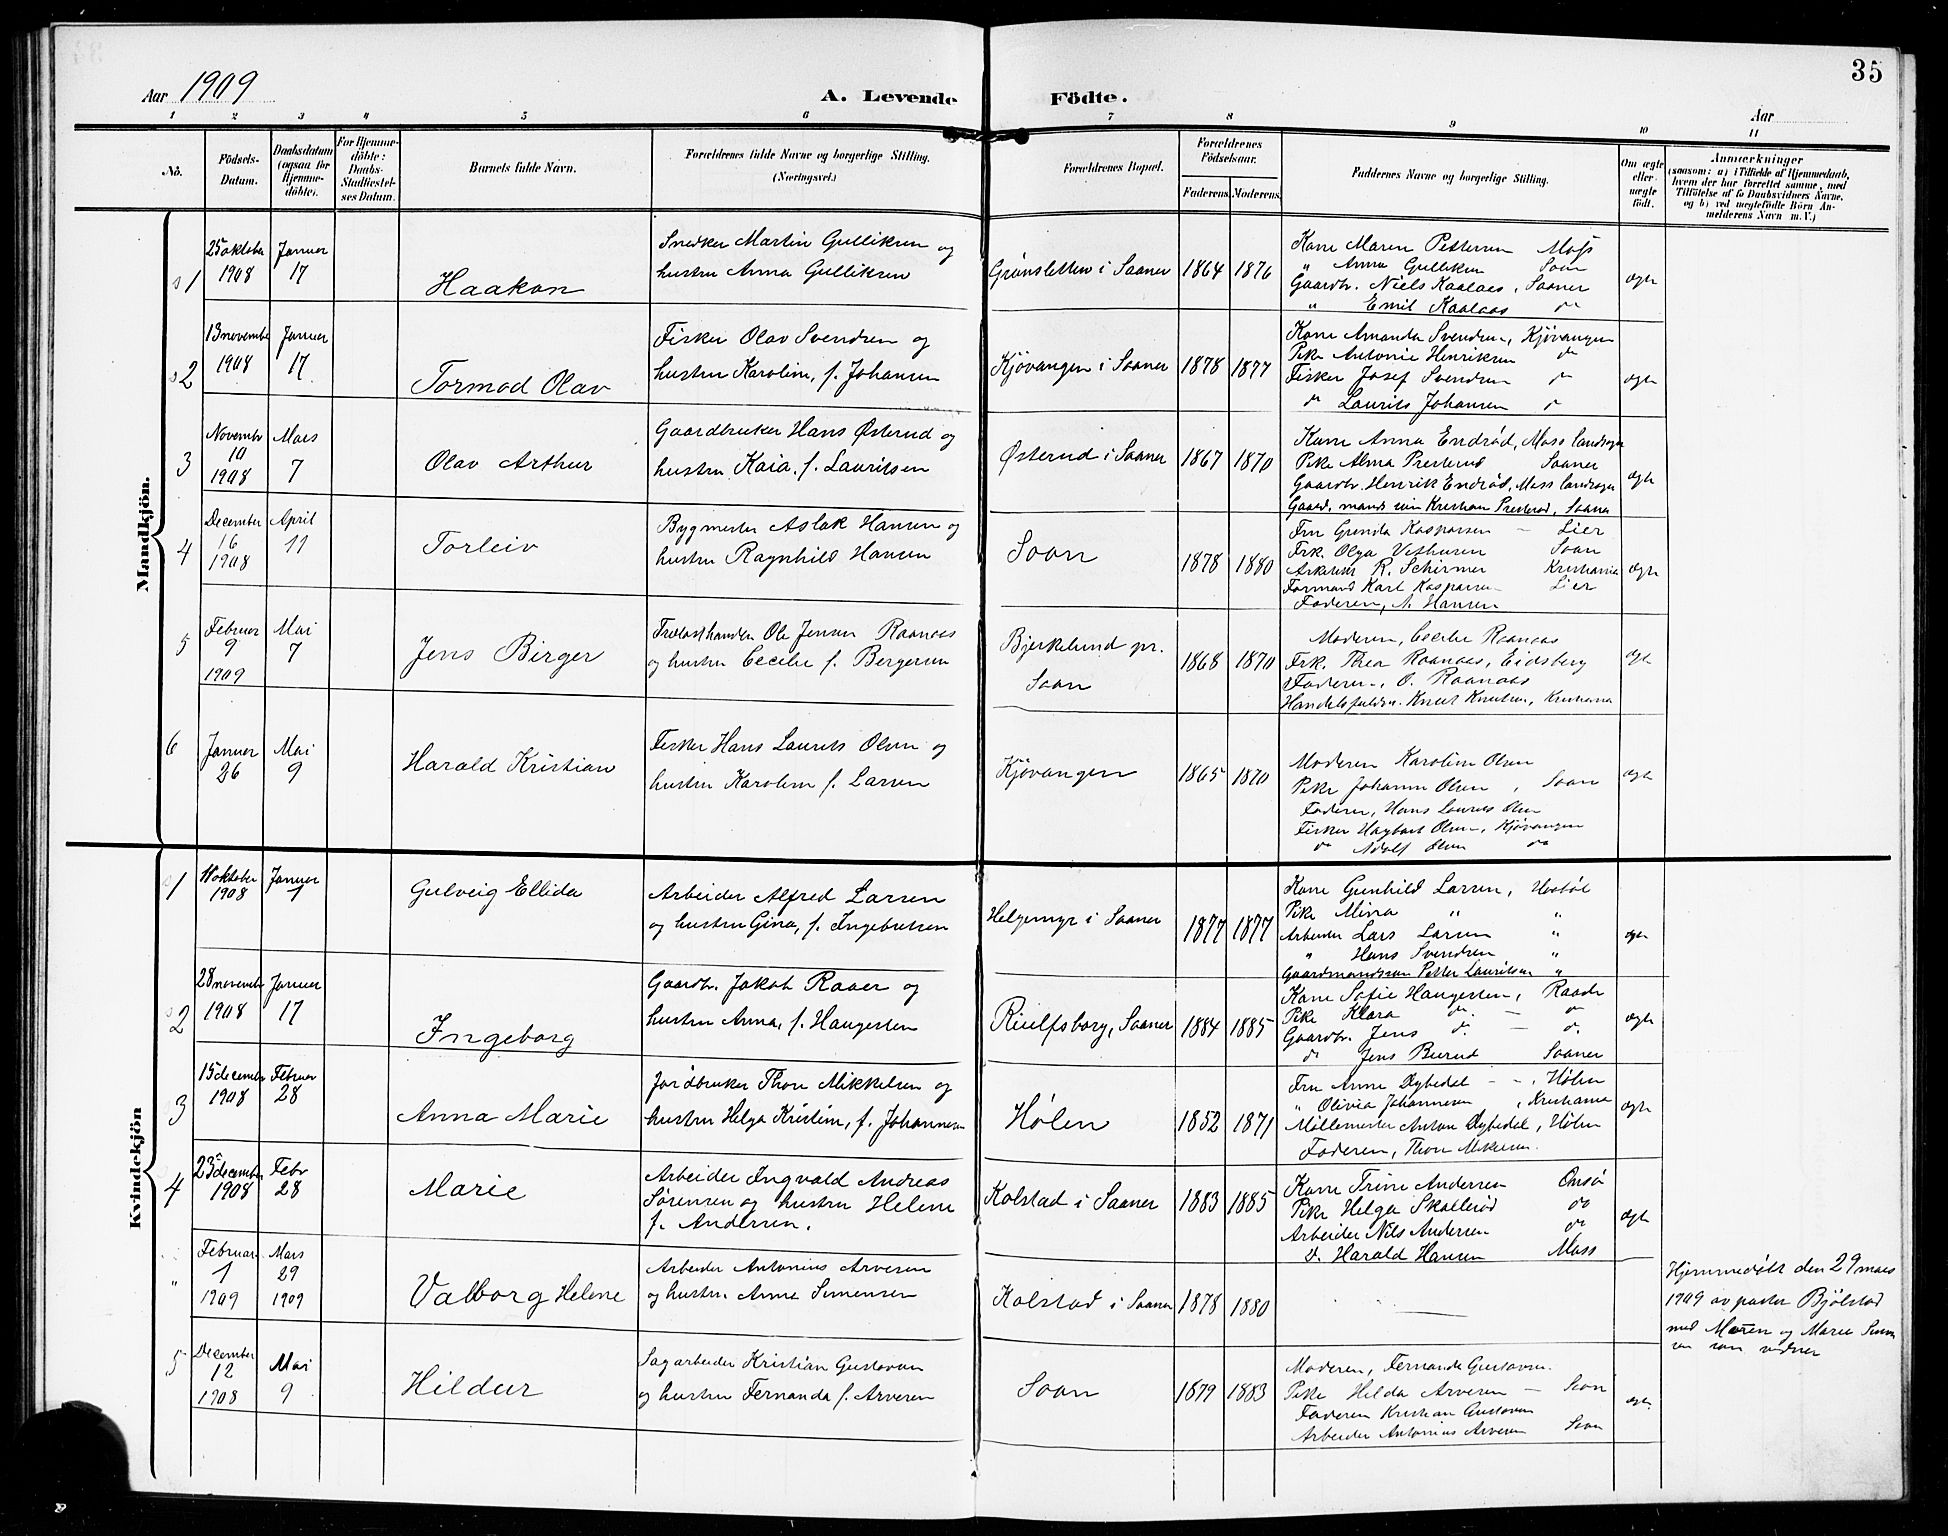 35
Aar 1909
A. Levende Födte.
Aar
1 2 3 4 5 6 7 8 9 10 11
No.
Födsels-Datum.
Daabsdatum (ogsaa for Hjemme-döbte).
For Hjemme-döbte: Daabs-Stadfæstel-ses Datum.
Barnets fulde Navn.
Forældrenes fulde Navne og borgerlige Stilling.
(Næringsvei.)
Forældrenes Bopæl.
Forældrenes Födselsaar.
Faderens. Moderens.
Faddernes Navne og borgerlige Stilling.
Om ægte eller uægte födt.
Anmærkninger
(saasom: a) i Tilfælde af Hjemmedaab, hvem der har forrettet samme, med Tilföielse af to Daabsvidners Navne, og b) ved uegtefödte Börn An-melderens Navn m. V.)
Mandkjön.
1
25 oktober 1908
Januar 17
Haakon
Snedker Martin Gulliksen og
hustru Anna Gulliksen
Grønsletten i Saaner
1864 1876
Kone Maren Pettersen Moss
" Anna Gulliksen Soon
Gaardbr. Niels Kaalaas, Saaner
" Emil Kaalaas do
ægte
2
13 november 1908
Januar 17
Tormod Olav
Fisker Olav Svendsen og
hustru Karoline, f. Johansen
Kjøvangen i Saaner
1878 1877
Kone Amanda Svendsen, Kjøvangen
Pike Antonie Henriksen do
Fisker Josef Svendsen do
do Laurits Johansen do
ægte
3
November 10 1908
Mars 7
Olav Arthur
Gaardbruker Hans Østerud og
hustru Kaia, f. Lauritsen
Østerud i Saaner
1867 1870
Kone Anna Endrød, Moss landsogn
Pike Alma Presterud Saaner
Gaardbr. Henrik Endrød, Moss landsogn
Gaardmands søn Kristian Presterud, Saaner
ægte
4
December 16 1908
April 11
Torleiv
Bygmester Aslak Hansen og
hustru Ragnhild Hansen
Soon
1878 1880
Fru Gunda Kaspersen – Lier
Frk. Olga Vethusen Soon
Arkitekt R. Schirmer Kristiania
Formand Karl Kaspersen Lier
Faderen, A. Hansen
ægte
5
Februar 9 1909
Mai 7
Jens Birger
Trælasthandler Ole Jensen Raanaas
og hustru Cecilie f. Bergersen
Bjerkelund pr. Soon
1868 1870
Moderen, Cecilie Raanaas
Frk. Thea Raanaas, Eidsberg
Faderen, O. Raanaas
Handelsfuldm. Knut Knutsen, Kristiania
ægte
6
Januar 26
Mai 9
Harald Kristian
Fisker Hans Laurits Olsen og
hustru Karoline f. Larsen
Kjøvangen
1865 1870
Moderen Karoline Olsen
Pike Johanne Olsen, Soon
Faderen, Hans Laurits Olsen
Fisker Hagbart Olsen, Kjøvangen
do Adolf Olsen do
ægte
Kvindekjön
1
oktober 1908
Januar 1
Gulveig Ellida
Arbeider Alfred Larsen
og hustru Gina, f. Ingebretsen
Helgemyr i Saaner
1877 1877
Kone Gunhild Larsen, Hvitsten
Pike Mina " "
Arbeider Lars Larsen "
" Hans Svendsen "
Gaardmandssøn Petter Lauritsen "
ægte
2
28 november 1908
Januar 17
Ingeborg
Gaardbr. Jakob Raaer og
hustru Anna, f. Haugesten
Riulfsborg, Saaner
1884 1885
Kone Sofie Haugesten, Raade
Pike Klara do. – do
Gaardbr. Jens do. – do.
do Jens Burud Saaner
ægte
3
15 december 1908
Februar 28
Anna Marie
Jordbruker Thore Mikkelsen og
hustru Helga Kristine, f. Johannesen
Hølen
1852 1871
Fru Anne Dybedal – Hølen
" Olivia Johannesen, Kristiania
Møllemester Anton Dybedal, Hølen
Faderen, Thore Mikkelsen.
ægte
4
23 december 1908
Febr 28
Marie
Arbeider Ingvald Andreas
Sørensen og hustru Helene
f. Andersen.
Kolstad i Saaner
1883 1885
Kone Trine Andersen Onsø
Pike Helga Skallerød do
Arbeider Nils Andersen do
d. Harald Hansen Moss
ægte
"
Februar 1 1909
Mars 29 1909
Valborg Helene
Arbeider Antonius Arvesen
og hustru Anna Simensen
Kolstad i Saaner
1878 1880
Hjemmedøbt den 29 mars
1909 av pastor Bjølstad
med Maren og Marie
som vidner
5
December 12 1908
Mai 9
Hildur
Sagarbeider Kristian Gustavsen
og hustru Fernanda f. Arvesen
Soon
1879 1883
Moderen, Fernanda Gustavsen.
Pike Hilda Arvesen – Soon
Faderen Kristian Gustavsen
Arbeider Antonius Arvesen Soon
ægte.